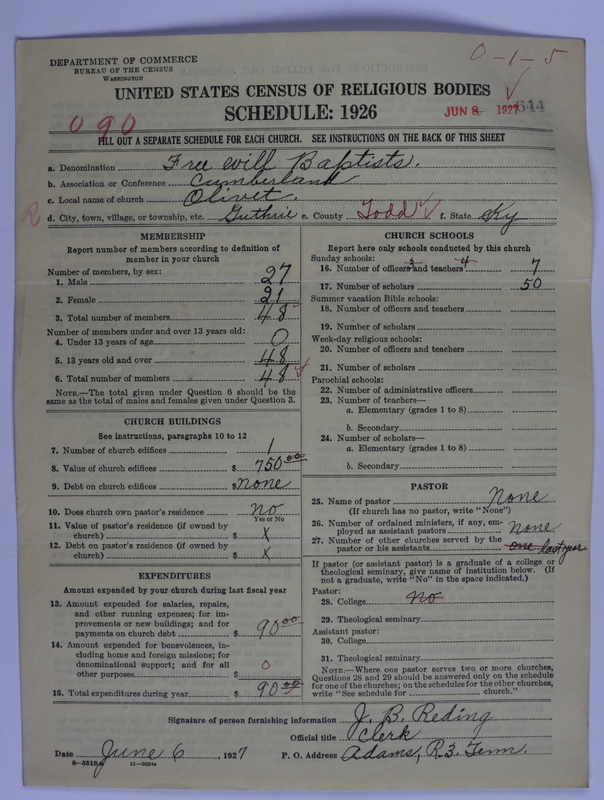 DEPARTMENT OF COMMERCE
BUREAU OF THE CENSUS
WASHINGTON
0-1-5
UNITED STATES CENSUS OF RELIGIOUS BODIES
SCHEDULE: 1926
JUN 8 1927
644
090
FILL OUT A SEPARATE SCHEDULE FOR EACH CHURCH. SEE INSTRUCTIONS ON THE BACK OF THIS SHEET
a. Denomination Free Will Baptists.
b. Association or Conference Cumberland
c. Local name of church Olivet.
d. City, town, village, or township, etc. Guthrie e. County Todd f. State Ky
MEMBERSHIP
Report number of members according to definition of
member in your church
Number of members, by sex:
1. Male 27
2. Female 21
3. Total number of members 48
Number of members under and over 13 years old:
4. Under 13 years of age 0
5. 13 years old and over 48
6. Total number of members 48
NOTE.—The total given under Question 6 should be
same as the total of males and females given under Question 3.
CHURCH BUILDINGS
See instructions, paragraphs 10 to 12
7. Number of church edifices 1
8. Value of church edifices $ 750.00
9. Debt on church edifices $ none
10. Does church own pastor's residence no
Yes or No
11. Value of pastor's residence (if owned by
church) $ X
12. Debt on pastor's residence (if owned by
church) $ X
EXPENDITURES
Amount expended by your church during last fiscal year
13. Amount expended for salaries, repairs,
and other running expenses; for im-
provements or new buildings; and for
payments on church debt $ 90.00
14. Amount expended for benevolences, in-
cluding home and foreign missions; for
denominational support; and for all
other purposes $ 0
15. Total expenditures during year $ 90.00
CHURCH SCHOOLS
Report here only schools conducted by this church
Sunday schools:
3 4
16. Number of officers and teachers 7
17. Number of scholars 50
Summer vacation Bible schools:
18. Number of officers and teachers
19. Number of scholars
Week-day religious schools:
20. Number of officers and teachers
21. Number of scholars
Parochial schools:
22. Number of administrative officers
23. Number of teachers—
a. Elementary (grades 1 to 8)
b. Secondary
24. Number of scholars—
a. Elementary (grades 1 to 8)
b. Secondary
PASTOR
25. Name of pastor None
(If church has no pastor, write "None")
26. Number of ordained ministers, if any, em-
ployed as assistant pastors none
27. Number of other churches served by the
pastor or his assistants one last year
If pastor (or assistant pastor) is a graduate of a college or
theological seminary, give name of institution below. (If
not a graduate, write "No" in the space indicated.)
Pastor:
28. College no
29. Theological seminary
Assistant pastor:
30. College
31. Theological seminary
NOTE.—Where one pastor serves two or more churches,
Questions 28 and 29 should be answered only on the schedule
for one of the churches; on the schedules for the other churches,
write "See schedule for church."
Signature of person furnishing information J. B. Reding
Official title Clerk
Date June 6, 1927 P. O. Address Adams, R.3, Tenn.
8-5518 a 11-9024a